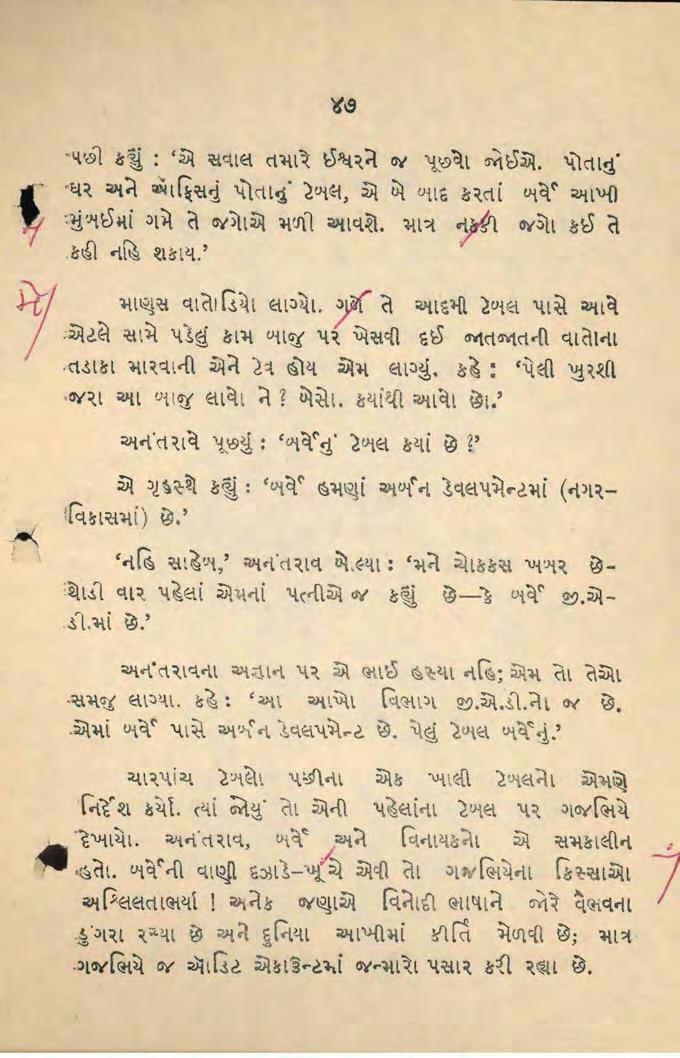 ૪૭
પછી કહ્યું : ‘એ સવાલ તમારે ઈશ્વરને જ પૂછવો જોઈએ. પોતાનું
ઘર અને ઑફિસનું પોતાનું ટેબલ, એ બે બાદ કરતાં બર્વે આખી
મુંબઈમાં ગમે તે જગોએ મળી આવશે. માત્ર નક્કી જગો કઈ તે
કહી નહિ શકાય.’
માણસ વાતોડિયો લાગ્યો. ગળે તે આદમી ટેબલ પાસે આવે
એટલે સામે પડેલું કામ બાજુ પર ખેસવી દઈ જાતજાતની વાતોના
તડાકા મારવાની એને ટેવ હોય એમ લાગ્યું. કહે : ‘પેલી ખુરશી
જરા આ બાજુ લાવો ને ? બેસો. કયાંથી આવો છો.’
અનંતરાવે પૂછયું : ‘બર્વેનું ટેબલ કયાં છે ?’
એ ગૃહસ્થે કહ્યું : ‘બર્વે હમણાં અર્બન ડેવલપમેન્ટમાં (નગર–
વિકાસમાં) છે.’
‘નહિ સાહેબ,’ અનંતરાવ બોલ્યા : ‘મને ચોકકસ ખબર છે–
થોડી વાર પહેલાં એમનાં પત્નીએ જ કહ્યું છે—કે બર્વે જી.એ–
ડી.માં છે.’
અનંતરાવના અજ્ઞાન પર એ ભાઈ હસ્યા નહિ; એમ તો તેઓ
સમજુ લાગ્યા. કહે : ‘આ આખો વિભાગ જી.એ.ડી.નો જ છે.
એમાં બર્વે પાસે અર્બન ડેવલપમેન્ટ છે. પેલું ટેબલ બર્વેનું.’
ચારપાંચ ટેબલો પછીના એક ખાલી ટેબલનો એમણે
નિર્દેશ કર્યો. ત્યાં જોયું તો એની પહેલાંના ટેબલ પર ગજભિયે
દેખાયો. અનંતરાવ, બર્વે અને વિનાયકનો એ સમકાલીન
હતો. બર્વેની વાણી દઝાડે–ખૂંચે એવી તો ગજભિયેના કિસ્સાઓ
અશ્લિલતાભર્યા ! અનેક જણાએ વિનોદી ભાષાને જોરે વૈભવના
ડુંગરા રચ્યા છે અને દુનિયા આખીમાં કીર્તિ મેળવી છે; માત્ર
ગજભિયે જ ઑડિટ એકાઉન્ટમાં જન્મારો પસાર કરી રહ્યા છે.